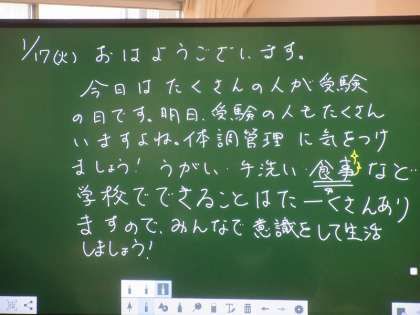 1/17(火) おはようございます。
今日はたくさんの人が受験
の日です。明日、受験の人もたくさん
いますよね。体調管理に気をつけ
ましょう！うがい・手洗い・食事など
学校でできることはたーくさんあり
ますので、みんなで意識をして生活
しましょう！